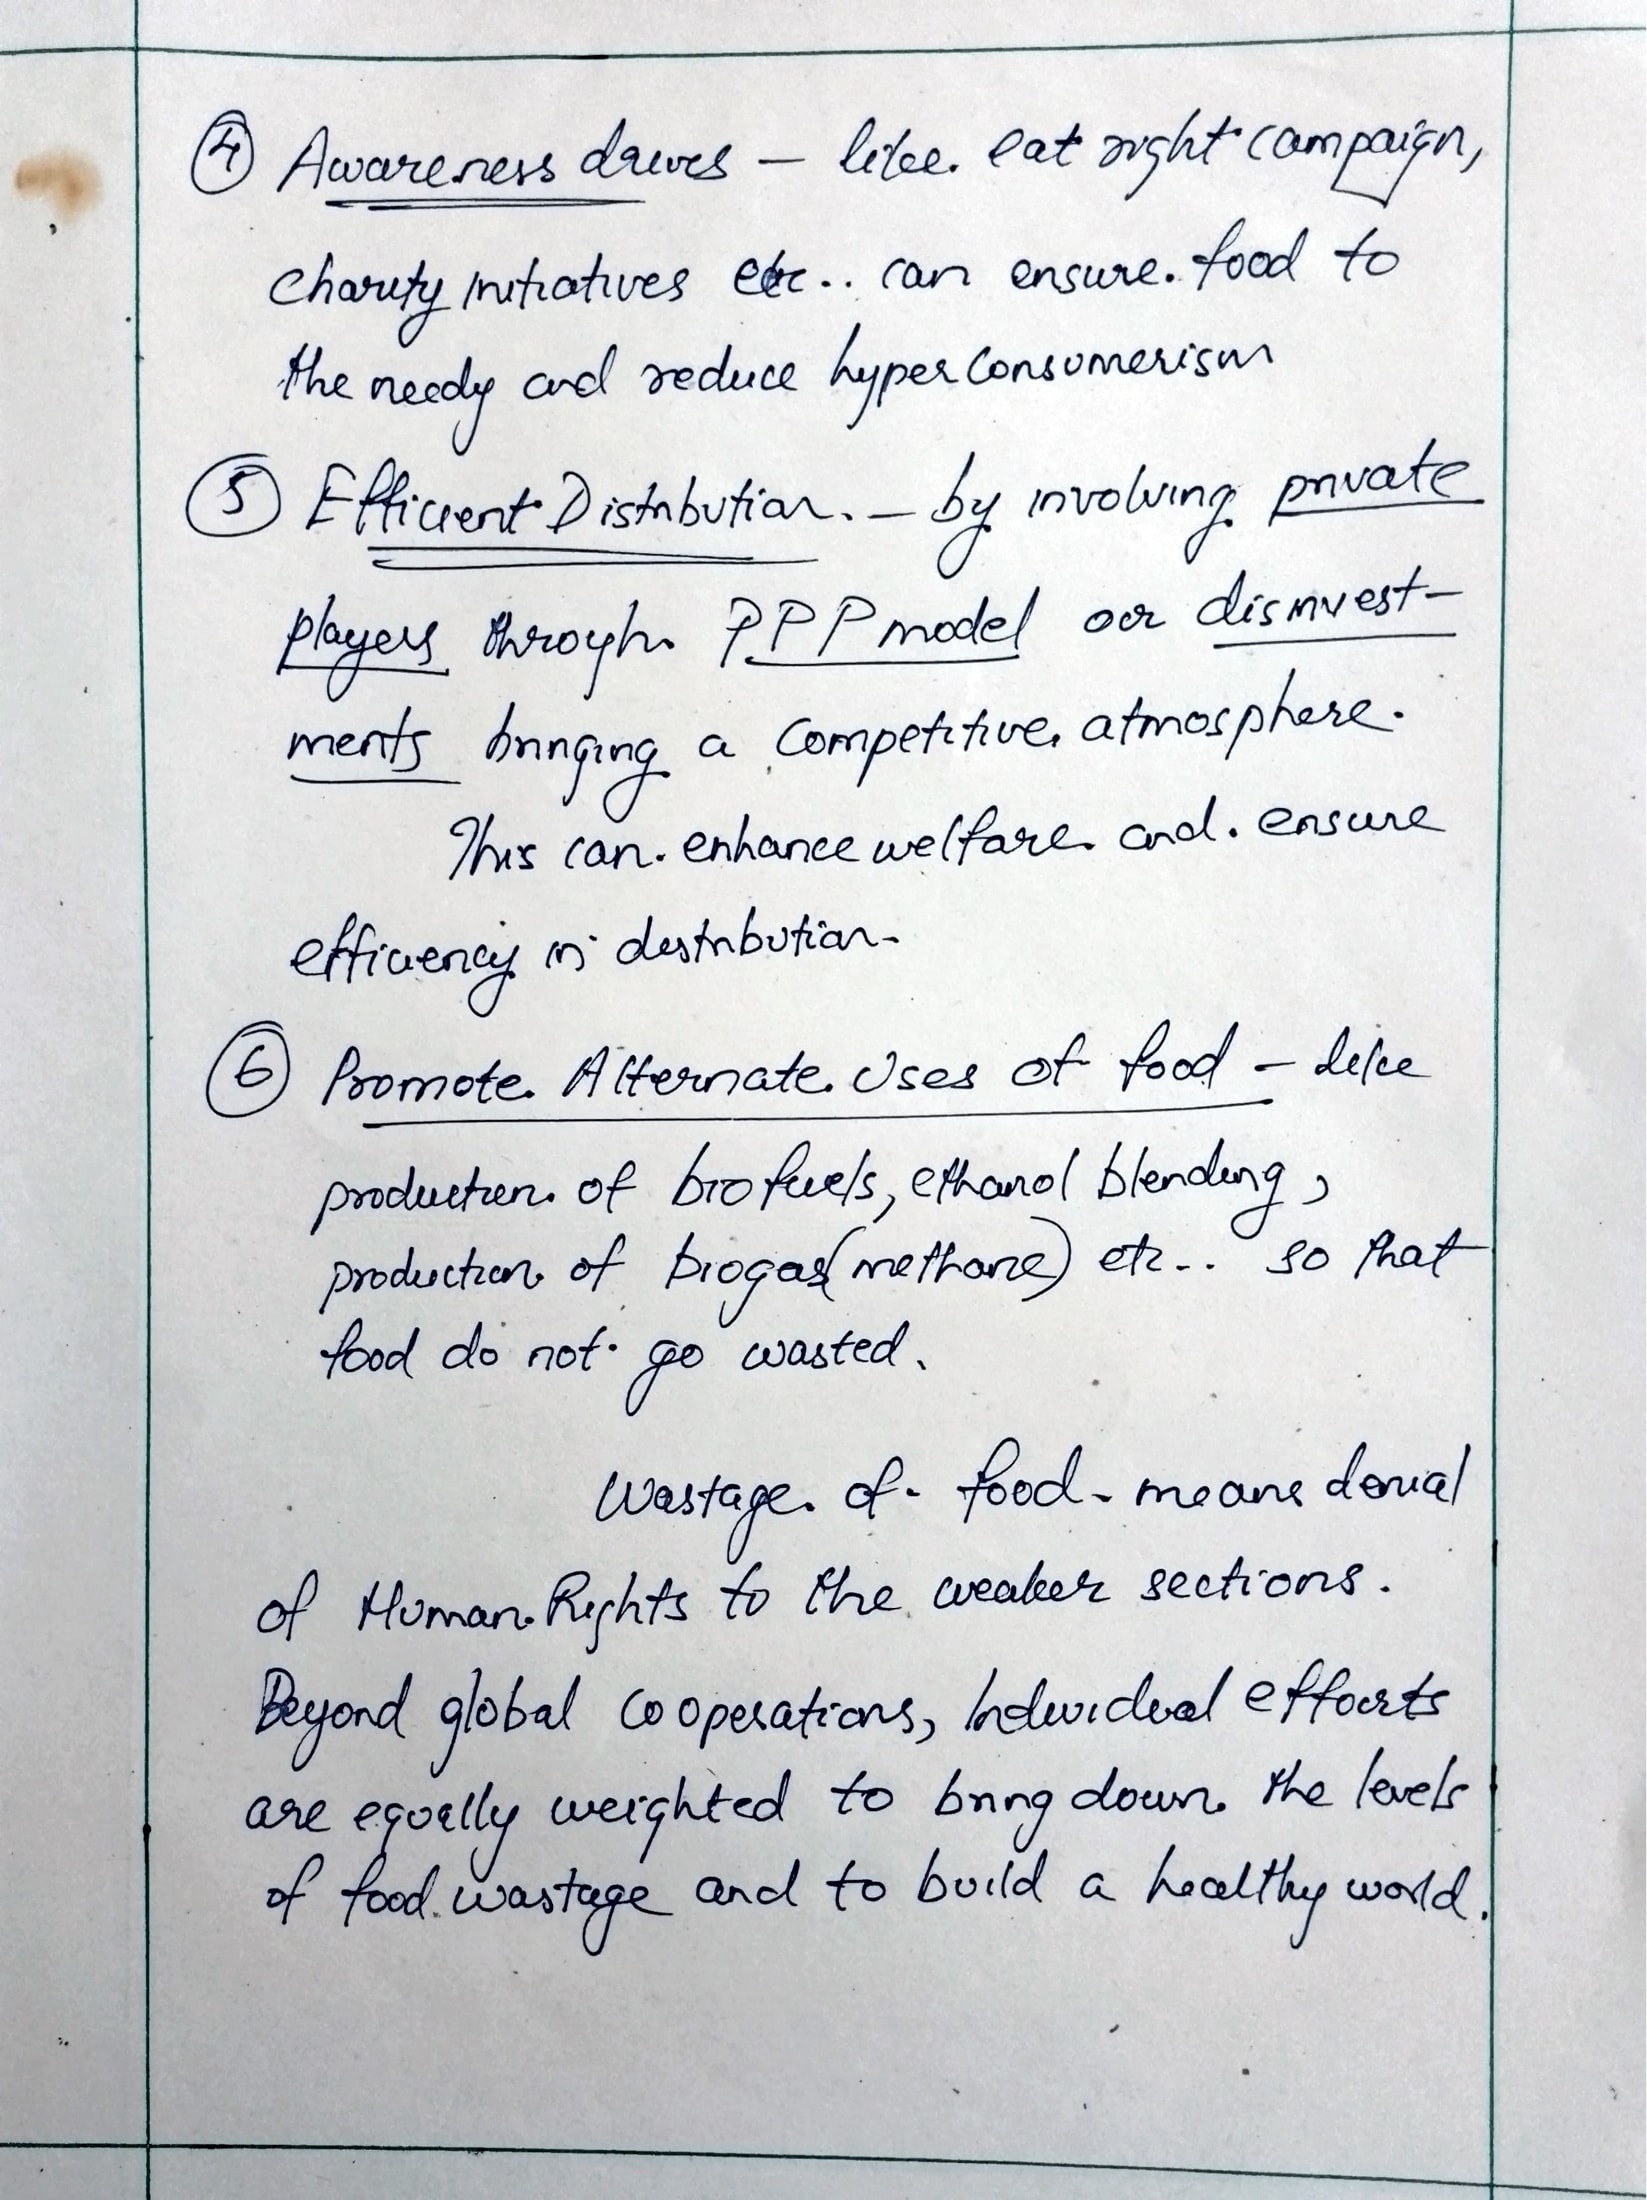 ④ Awareness drives – like eat right campaign,
charity initiatives etc.. can ensure food to
the needy and reduce hyperconsumerism
⑤ Efficient Distribution. – by involving private
players through PPP model or disinvest-
ments bringing a competitive atmosphere.
This can enhance welfare and ensure
efficiency in distribution.
⑥ Promote Alternate Uses of food – like
production of biofuels, ethanol blending,
production of biogas (methane) etc.. so that
food do not go wasted.
Wastage of food means denial
of Human Rights to the weaker sections.
Beyond global cooperations, Individual efforts
are equally weighted to bring down the levels
of food wastage and to build a healthy world.